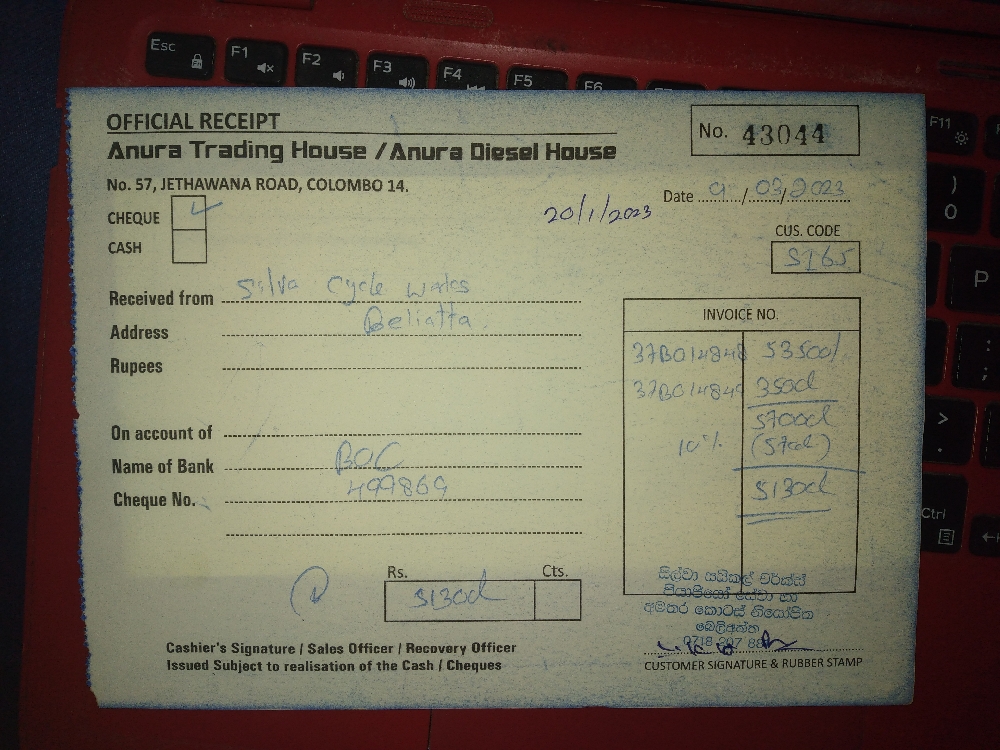 Esc F1 F2 F3 F4 F5 F6
F11
OFFICIAL RECEIPT
No. 43044
Anura Trading House / Anura Diesel House
No. 57, JETHAWANA ROAD, COLOMBO 14.
Date 9/03/2023
20/1/2023
CHEQUE ✓
CASH
CUS. CODE
SI65
Received from Silva Cycle works
Address Beliatta
Rupees
INVOICE NO.
37B014848 53500/
37B014849 3500/
57000/
10% (5700/)
51300/
On account of
Name of Bank BOC
Cheque No. 499869
Rs. Cts.
51300/
සිල්වා සයිකල් වර්ක්ස්
බෙලිඅත්ත
Cashier's Signature / Sales Officer / Recovery Officer
Issued Subject to realisation of the Cash / Cheques
CUSTOMER SIGNATURE & RUBBER STAMP
) 0
P
: ;
> .
Ctrl